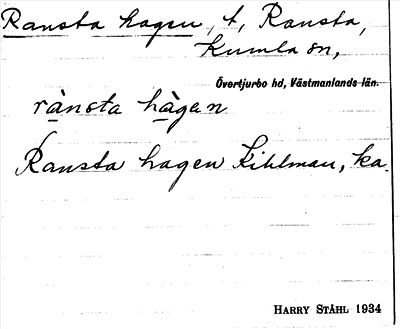 Ransta hagen, t, Ransta,
Kumla sn,
Övertjurbo hd, Västmanlands län.
rànsta hàgan
Ransta hagen Kihlman, ka.
HARRY STÅHL 1934